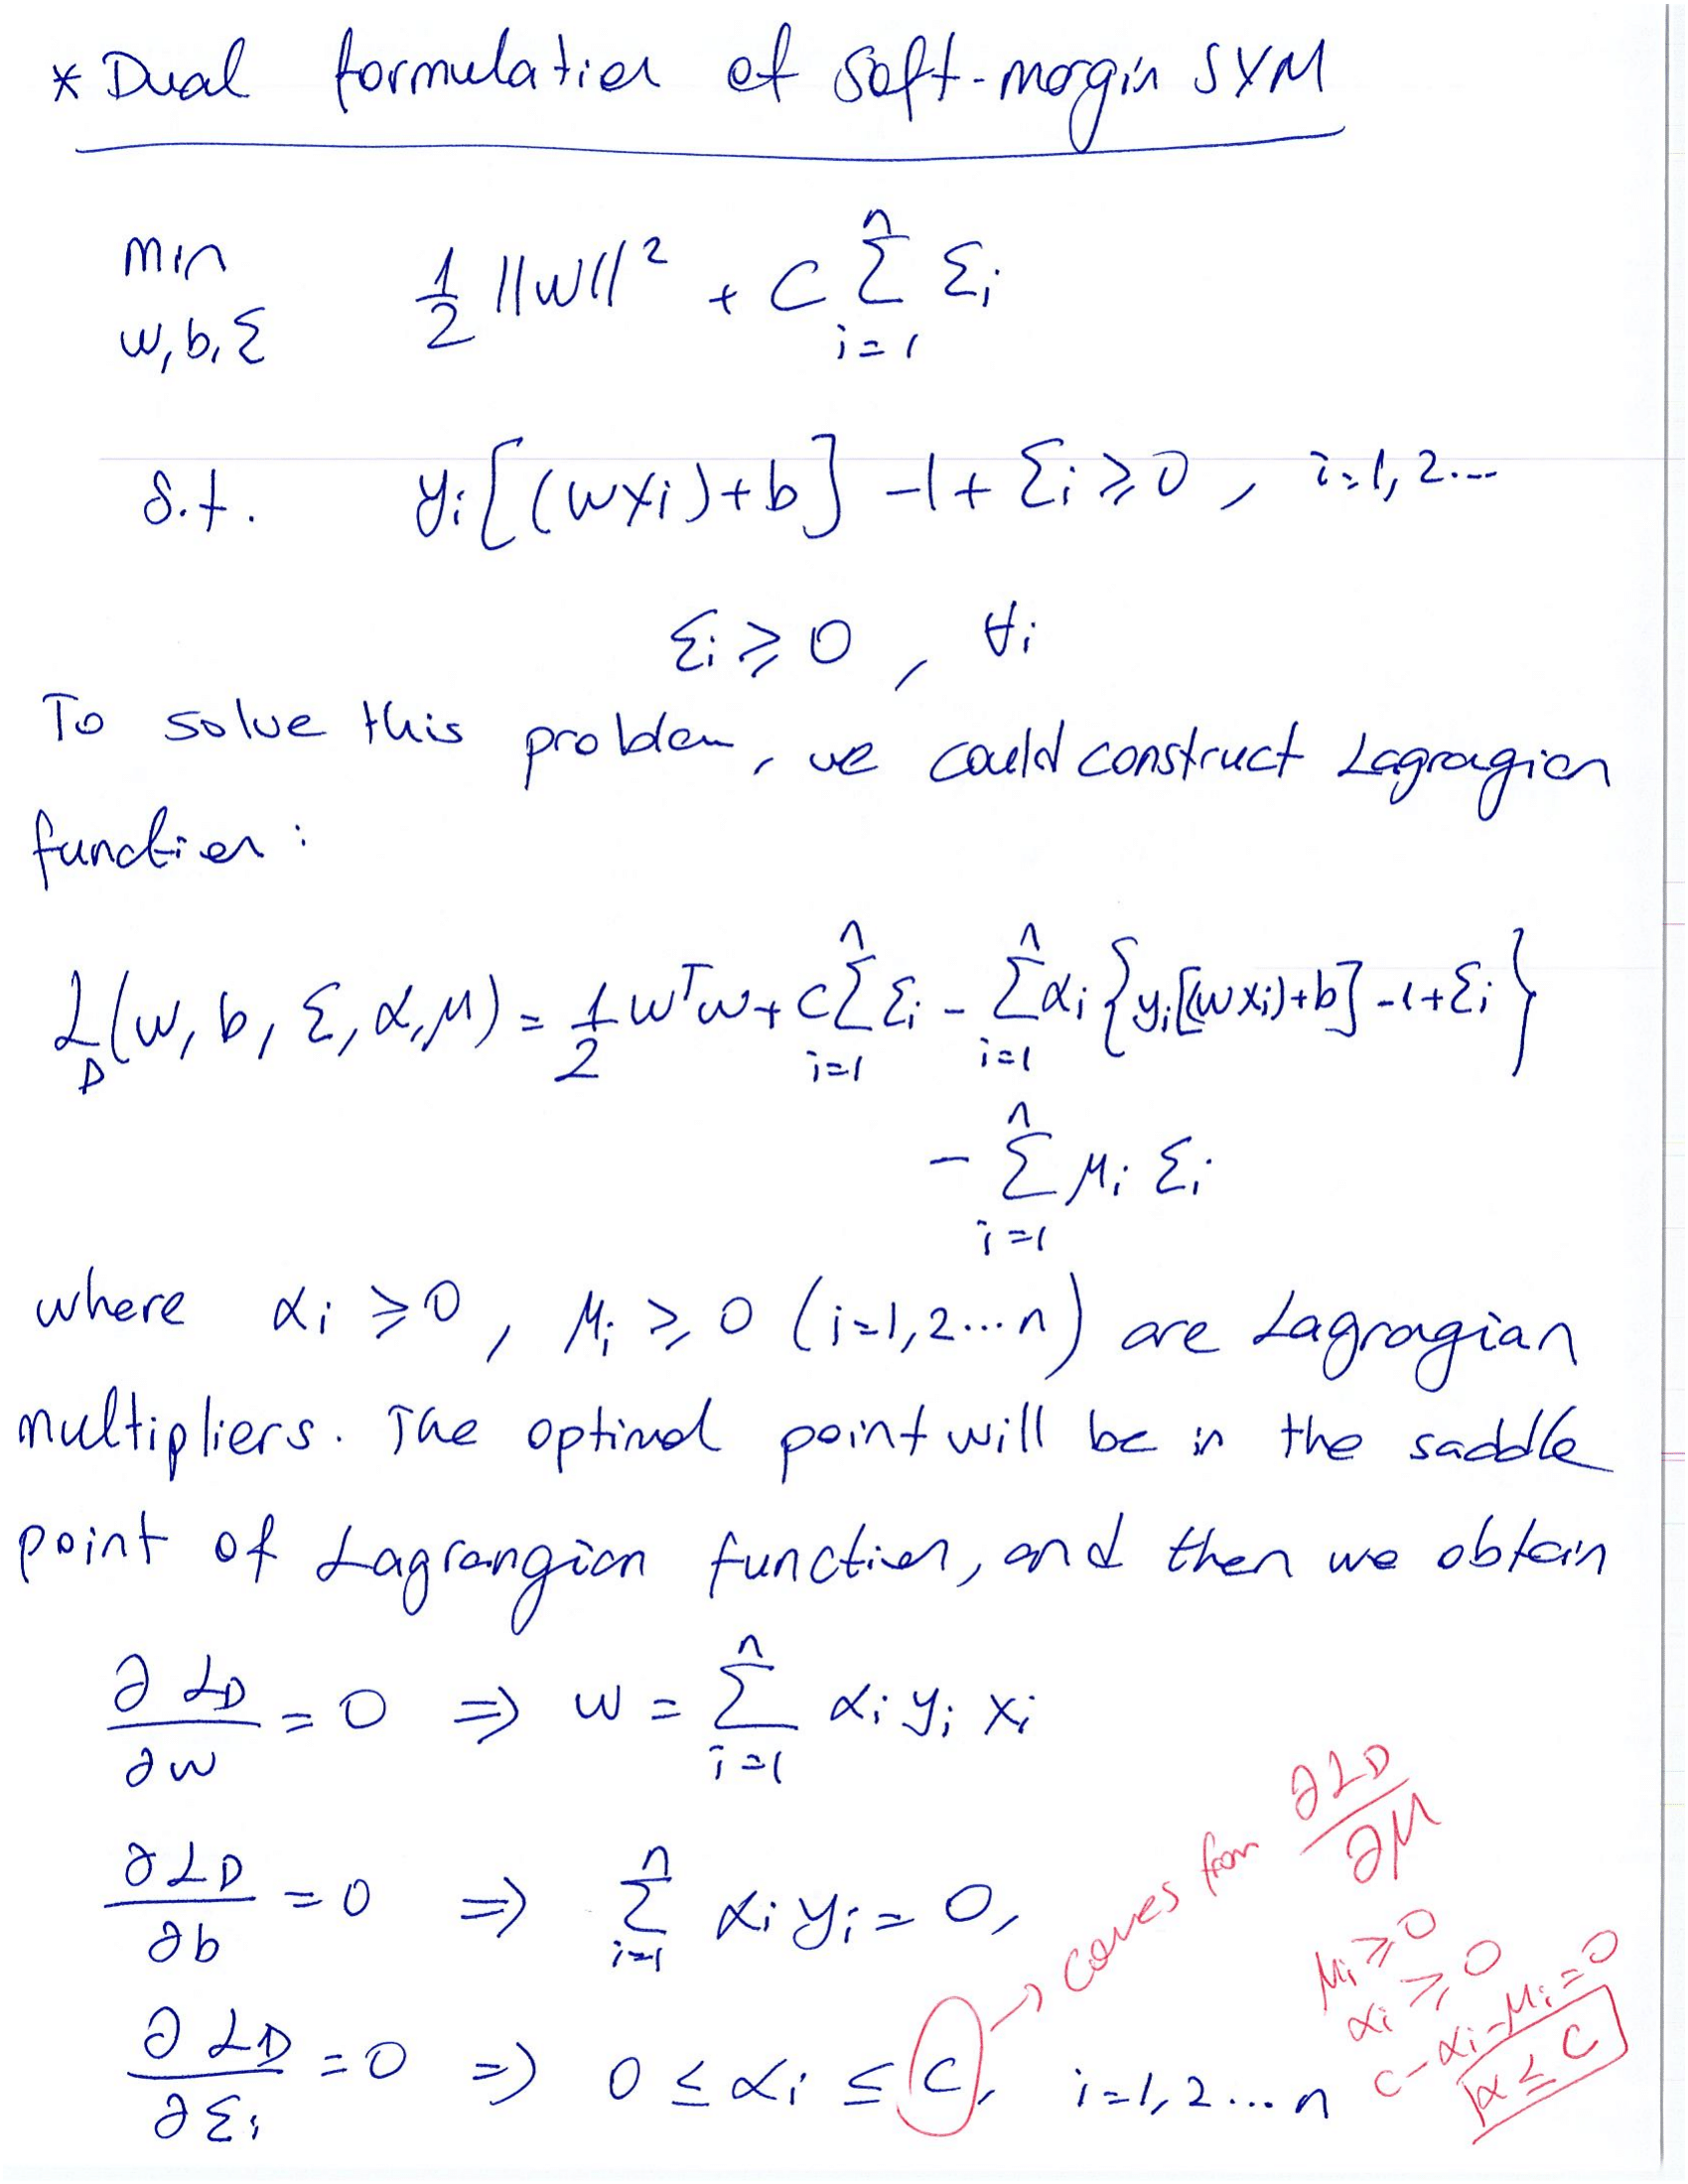 * Dual formulation of soft-margin SVM
min w,b,ξ ½ ||w||² + C Σ_{i=1}^{n} ξi
s.t. yi[(wxi)+b] -1+ ξi ≥ 0, i=1,2...
ξi ≥ 0, ∀i
To solve this problem, we could construct Lagragian
function:
L_D(w, b, ξ, α, μ) = ½ wᵀw + C Σ_{i=1}^{n} ξi - Σ_{i=1}^{n} αi {yi[(wxi)+b] -1+ξi}
- Σ_{i=1}^{n} μi ξi
where αi ≥ 0, μi ≥ 0 (i=1,2...n) are Lagragian
multipliers. The optimal point will be in the saddle
point of Lagrangian function, and then we obtain
∂L_D/∂w = 0 ⇒ w = Σ_{i=1}^{n} αi yi xi
∂L_D/∂b = 0 ⇒ Σ_{i=1}^{n} αi yi = 0,
∂L_D/∂ξi = 0 ⇒ 0 ≤ αi ≤ C, i=1,2...n
→ comes from ∂L_D/∂μ
μi ≥ 0
αi ≥ 0
C-αi-μi=0
α ≤ C